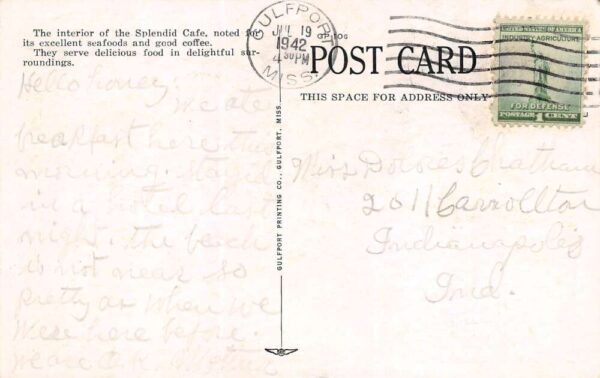 The interior of the Splendid Cafe, noted for
its excellent seafoods and good coffee.
They serve delicious food in delightful sur-
roundings.
Hello honey:
We ate
breakfast here this
morning. stayed
in a hotel last
night. the beach
is not near so
pretty as when we
were here before.
we are O.K. Mother
GULFPORT PRINTING CO., GULFPORT, MISS.
GULFPORT
JUL 19
1942
4 30 PM
MISS.
GP 106
POST CARD
THIS SPACE FOR ADDRESS ONLY
UNITED STATES OF AMERICA
INDUSTRY AGRICULTURE
FOR DEFENSE
POSTAGE 1 CENT
Miss Dolores Chatham
2011 Carrollton
Indianapolis
Ind.